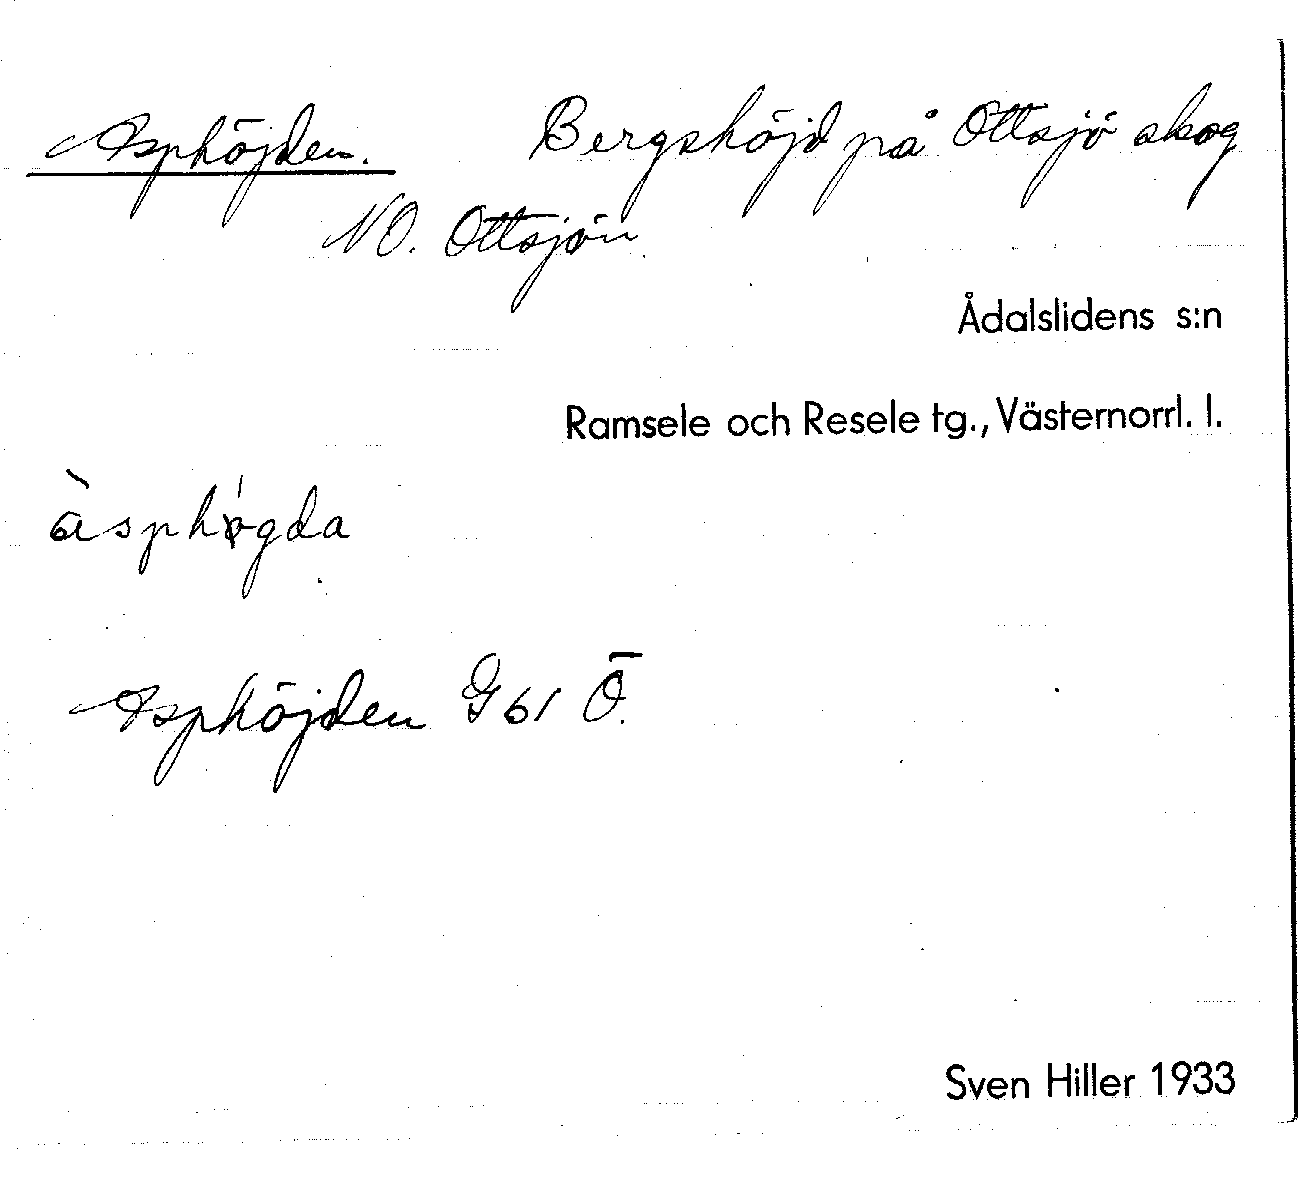 Asphöjden. Bergshöjd på Ottsjö skog
NO. Ottsjön.
Ådalslidens s:n
Ramsele och Resele tg., Västernorrl. l.
Asphöjden G61 Ö.
Sven Hiller 1933